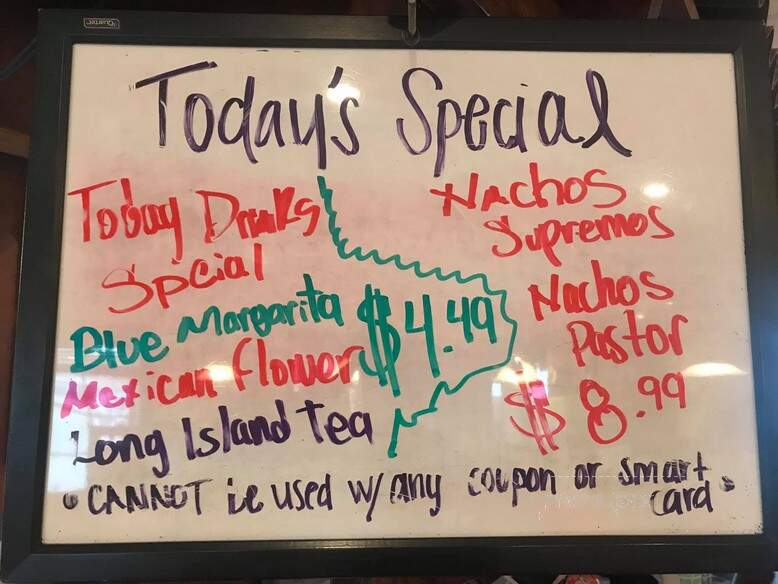 Quartet
Today's Special
Tobay Drinks
Spcial
Blue Margarita
Mexican Flower
Long Island Tea
$4.49
Nachos
Supremos
Nachos
Pastor
$8.99
• CANNOT be used w/ any coupon or smart
card •